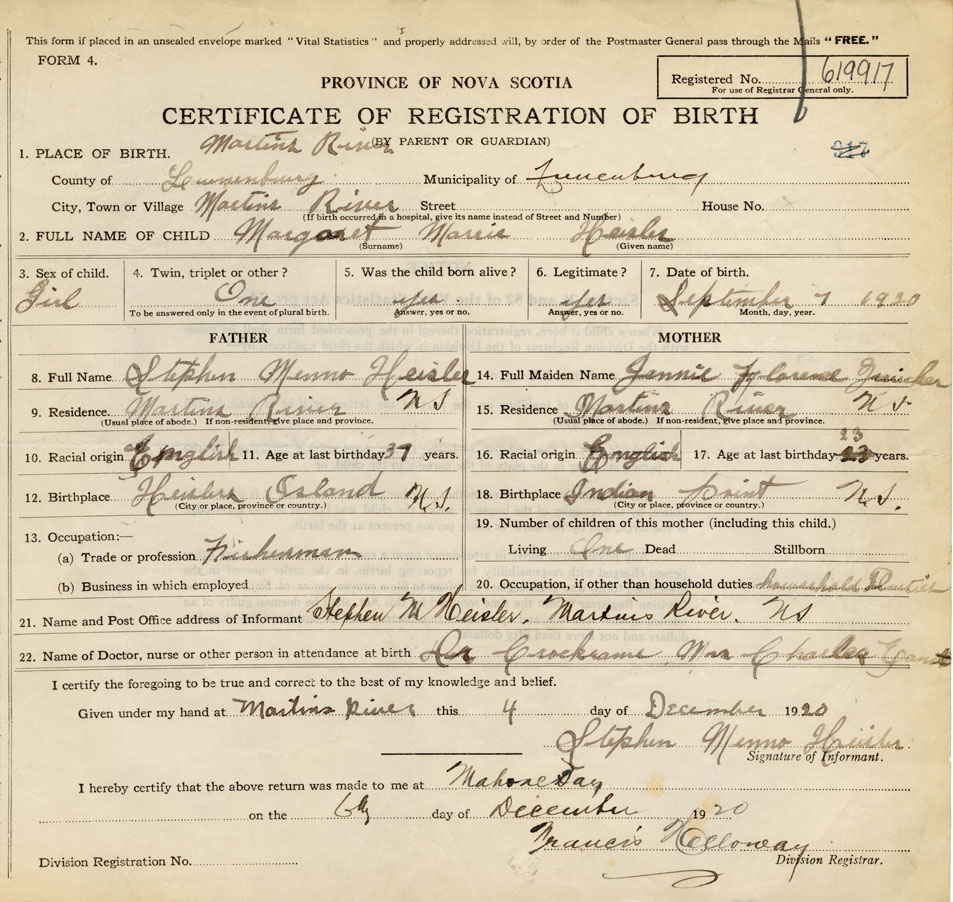 This form if placed in an unsealed envelope marked "Vital Statistics" and properly addressed will, by order of the Postmaster General pass through the Mails "FREE."
FORM 4.
PROVINCE OF NOVA SCOTIA
Registered No. 619917
For use of Registrar General only.
CERTIFICATE OF REGISTRATION OF BIRTH
(BY PARENT OR GUARDIAN)
1. PLACE OF BIRTH. Martins River
County of Lunenburg Municipality of Lunenburg
City, Town or Village Martins River Street House No.
(If birth occurred in a hospital, give its name instead of Street and Number)
2. FULL NAME OF CHILD Margaret Marrie Heisler
(Surname) (Given name)
3. Sex of child. 4. Twin, triplet or other? 5. Was the child born alive? 6. Legitimate? 7. Date of birth.
Girl One yes yes September 7 1920
To be answered only in the event of plural birth. Answer, yes or no. Answer, yes or no. Month, day, year.
FATHER MOTHER
8. Full Name Stephen Menno Heisler 14. Full Maiden Name Jennie Florence
9. Residence. Martins River N S 15. Residence Martins River N S.
(Usual place of abode.) If non-resident, give place and province. (Usual place of abode.) If non-resident, give place and province.
23
10. Racial origin English 11. Age at last birthday 37 years. 16. Racial origin English 17. Age at last birthday 23 years.
12. Birthplace Heislers Island N.S. 18. Birthplace Indian Point N S.
(City or place, province or country.) (City or place, province or country.)
13. Occupation:— 19. Number of children of this mother (including this child.)
(a) Trade or profession Fisherman Living One Dead Stillborn
(b) Business in which employed 20. Occupation, if other than household duties household Duties
21. Name and Post Office address of Informant Stephen M Heisler, Martins River. NS
22. Name of Doctor, nurse or other person in attendance at birth Dr Mrs Charles
I certify the foregoing to be true and correct to the best of my knowledge and belief.
Given under my hand at Martins River this 4 day of December 1920
Stephen Menno Heisler
Signature of Informant.
I hereby certify that the above return was made to me at Mahone Bay
on the 6th day of December 1920
Francis Holloway
Division Registration No. Division Registrar.